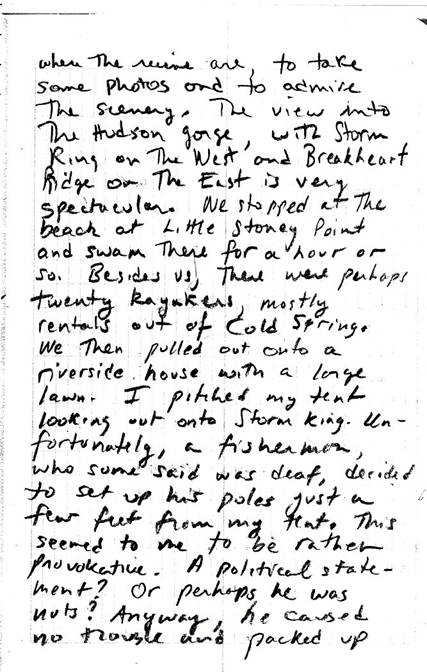 where The ruins are, to take
some photos and to admire
The scenery. The view into
The Hudson gorge, with Storm
King on The West and Breakheart
Ridge on The East is very
spectacular. We stopped at The
beach at Little Stoney Point
and swam There for a hour or
so. Besides us, There were perhaps
twenty kayakers, mostly
rentals out of Cold Spring.
We Then pulled out onto a
riverside house with a large
lawn. I pitched my tent
looking out onto Storm King. Un-
fortunately, a fisherman,
who some said was deaf, decided
to set up his poles just a
few feet from my tent. This
seemed to me to be rather
provokative. A political state-
ment? Or perhaps he was
nuts? Anyway, he caused
no trouble and packed up